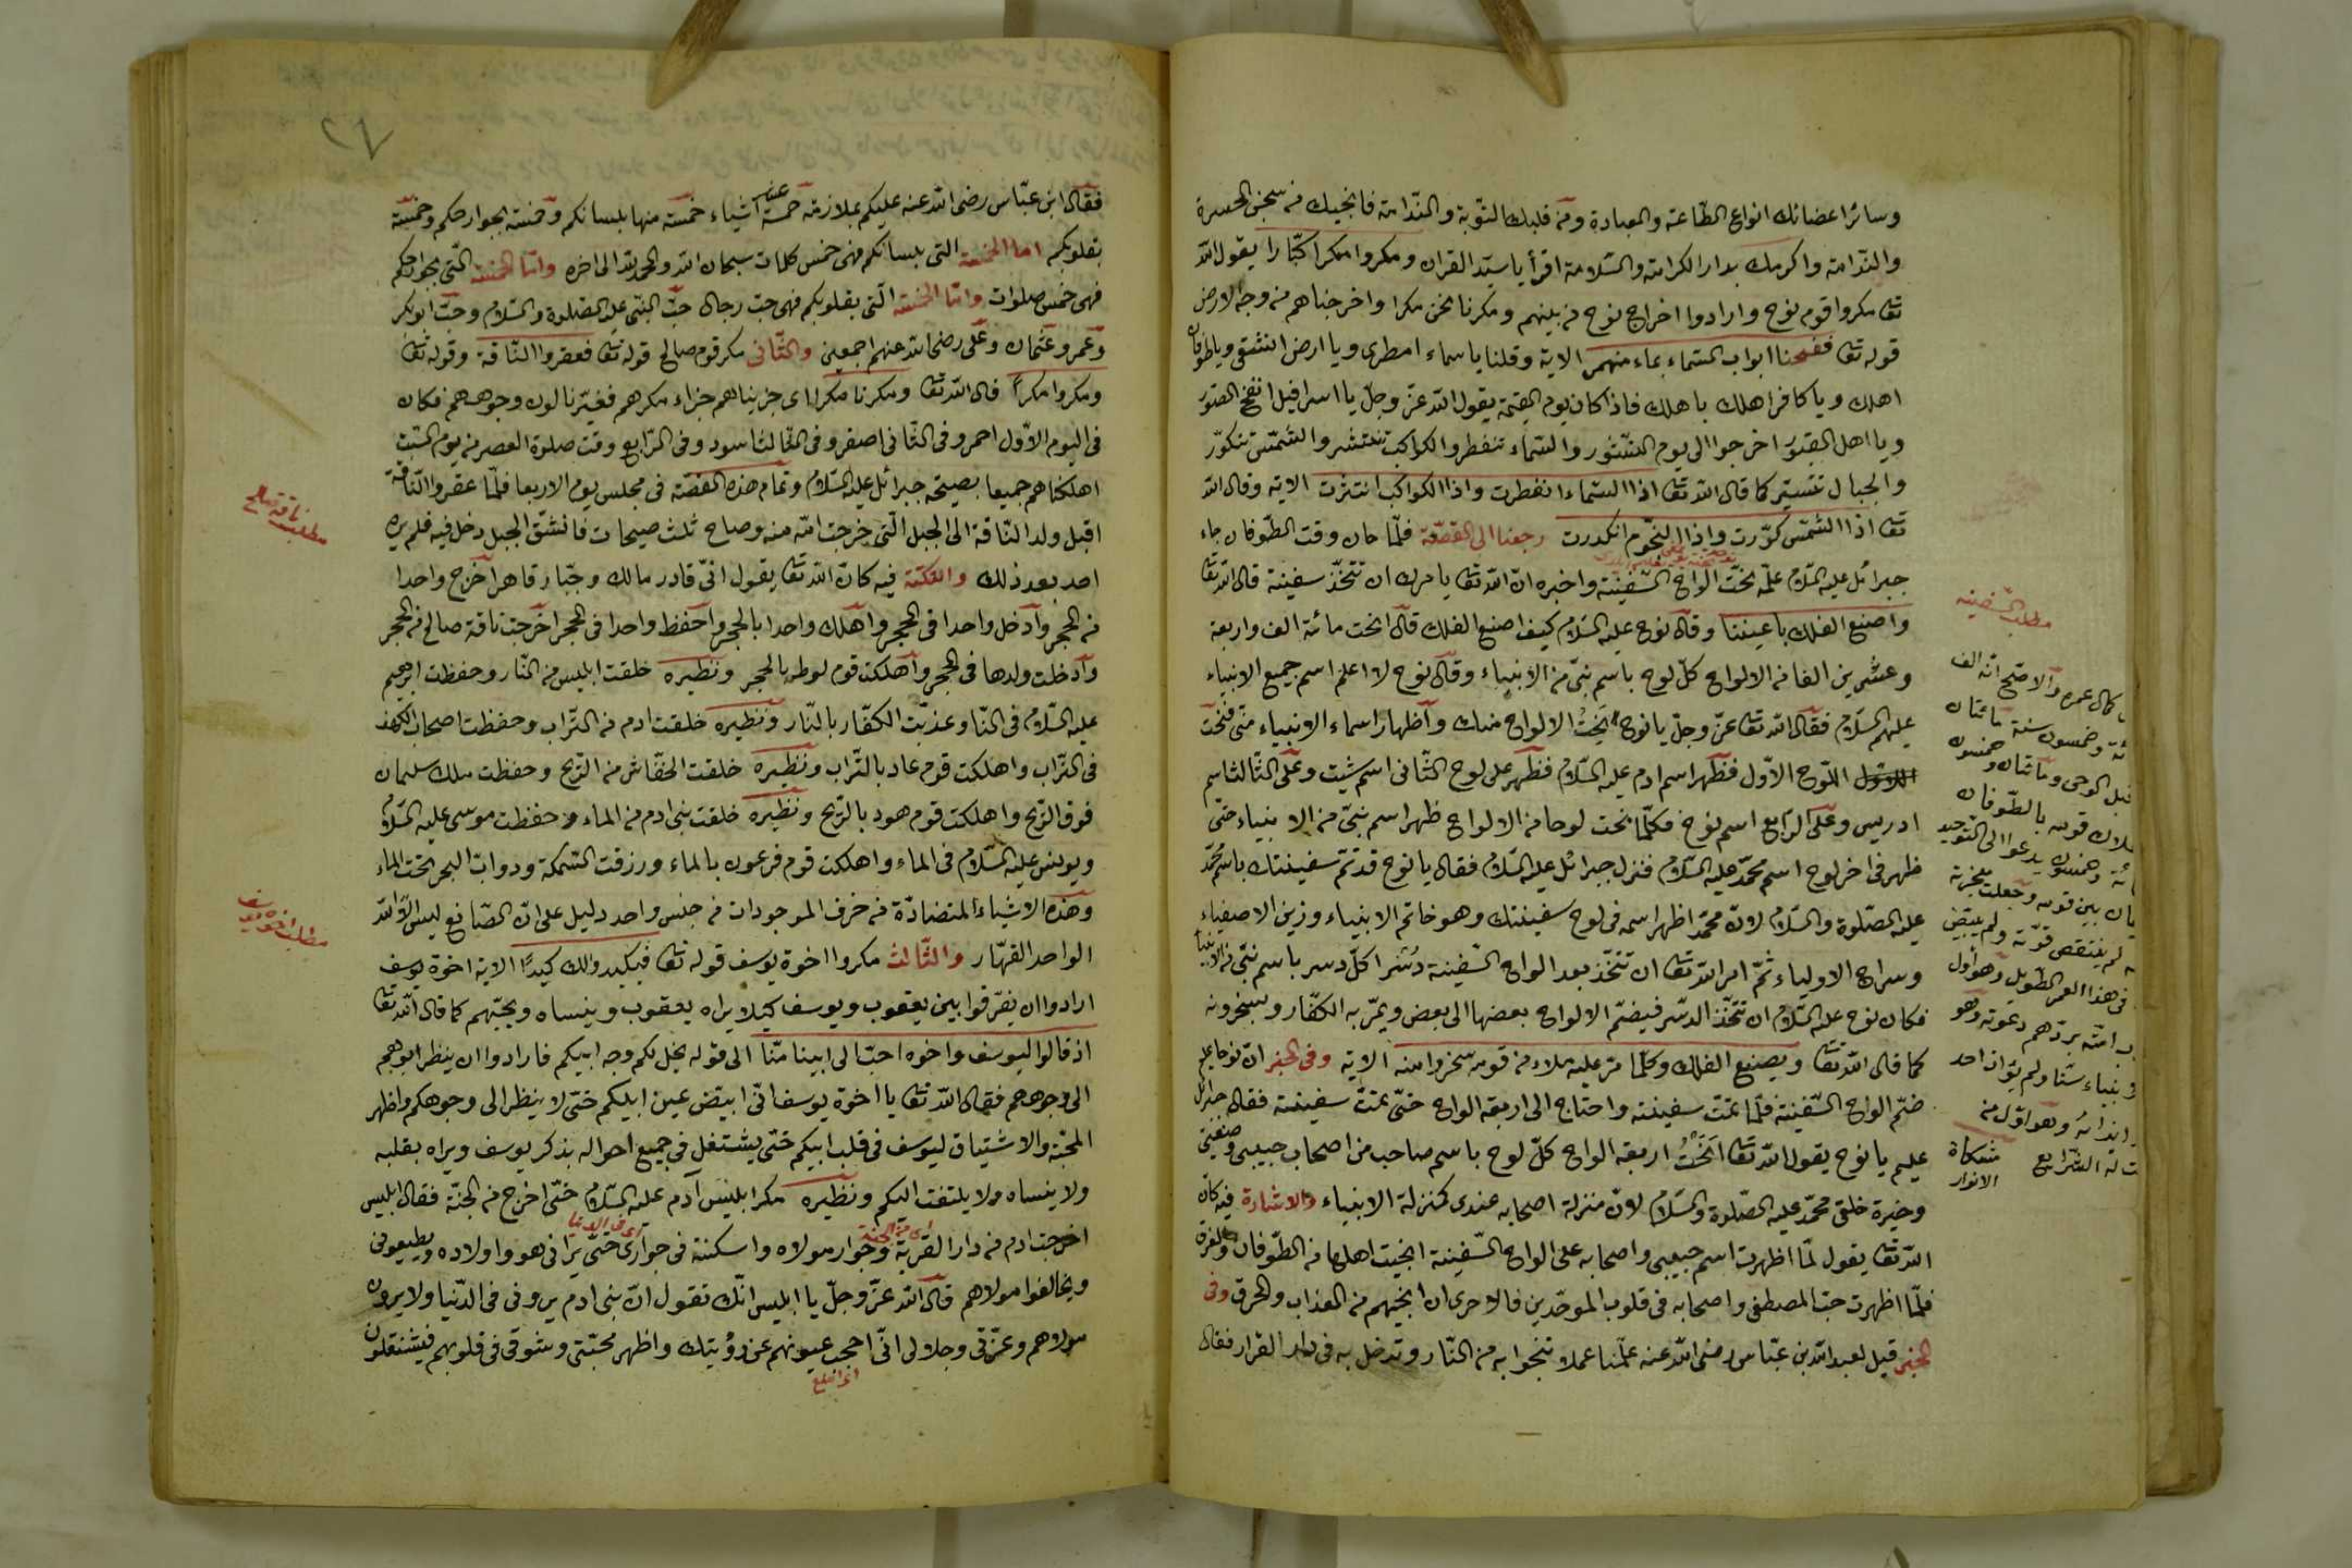 وسائر اعضائك انواع الطّاعة والعبادة ومن قلبك التّوبة والنّدامة فانجيك من سجن الحسرة
والنّدامة واكرمك بدار الكرامة والسّلامة اقرأ يا سيّد القران ومكروا مكرا كبّارا يقول اللّه
تعا مكروا قوم نوح وارادوا اخراج نوح من بينهم ومكرنا نحن مكرا واخرجناهم من وجه الارض
قوله تعا ففتحنا ابواب السّماء بماء منهمر الاية وقلنا يا سماء امطرى ويا ارض انشقى ويا طوفان
اهلك ويا كافر اهلك باهلك فاذا كان يوم القيمة يقول اللّه عزّ وجلّ يا اسرافيل انفخ الصّور
ويا اهل القبور اخرجوا الى يوم النّشور والسّماء تنفطر والكواكب تنتشر والشّمس تتكوّر
والجبال تتسيّر كما قال اللّه تعا اذا السّماء انفطرت واذا الكواكب انتثرت الاية وقال اللّه
تعا اذا الشّمس كوّرت واذا النّجوم انكدرت رجعنا الى القصّة فلمّا حان وقت الطّوفان جاء
جبرائل عليه السّلام علّمه نحت الواح السّفينة واخبره انّ اللّه تعا يامرك ان تتّخذ سفينة قال اللّه تعا
واصنع الفلك باعيننا وقال نوح عليه السّلام كيف اصنع الفلك قال انحت مائة الف واربعة
وعشرين الفا من الالواح كلّ لوح باسم نبىّ من الانبياء وقال نوح لا اعلم اسم جميع الانبياء
عليهم السّلام فقال اللّه تعا عزّ وجلّ يا نوح انحِتُ الالواح منك واظهار اسماء الانبياء منّى فنحت
اللوح الاوّل فظهر اسم ادم عليه السّلام فظهر على لوح الثّانى اسم شيث وعلى الثّالث اسم
ادريس وعلى الرّابع اسم نوح فكلّما نحت لوحا من الالواح ظهر اسم نبىّ من الانبياء حتّى
ظهر فى اخر لوح اسم محمّد عليه السّلام فنزل جبرائل عليه السّلام فقال يا نوح قد تمّ سفينتك باسم محمّد
عليه الصّلوة والسّلام لانّ محمّد اظهر اسمه فى لوح سفينتك وهو خاتم الانبياء وزين الاصفياء
وسراج الاولياء ثمّ امر اللّه تعا ان تتّخذ بعد الواح السّفينة دُسُرا كلّ دسر باسم نبىّ من الانبياء
فكان نوح عليه السّلام ان تتّخذ الدسّر فيضمّ الالواح بعضها الى بعض ويمرّ به الكفّار ويسخرونه
كما قال اللّه تعا ويصنع الفلك وكلّما مرّ عليه ملاء من قومه سخروا منه الاية وفى الخبر انّ نوحا عليه
ضمّ الواح السّفينة فلمّا تمّت سفينته واحتاج الى اربعة الواح حتّى تمّت سفينته فقال جبرائل
عليم يا نوح يقول اللّه تعا انحِتُ اربعة الواح كلّ لوح باسم صاحب من اصحاب حبيبى وصفيّى
وخيرة خلقى محمّد عليه الصّلوة والسّلام لانّ منزلة اصحابه عندى كمنزلة الانبياء والاشارة فيه كانّ
اللّه تعا يقول لمّا اظهرت اسم حبيبى واصحابه على الواح السّفينة انجيت اهلها من الطّوفان والغرق
فلمّا اظهرت حبّ المصطفى واصحابه فى قلوب الموحّدين فالاحرى ان انجيهم من العذاب والحرق وفى
الخبر قيل لعبد اللّه بن عبّاس رضى اللّه عنه علّمنا عملا ننجوا به من النّار وندخل به فى دار القرار فقال
مطلب السّفينه
كمال عمره والاصحّ انّه الف
وخمسون سنة مائتان
قبل الوحى ومائتان وخمسون
هلاك قومه بالطّوفان
وخمسون يدعوا الى التوحيد
بين قومه وجعلت معجزته
لم ينتقص قوّته ولم يبيّض
فى هذا العمر الطّويل وهو اوّل
امّته بردّهم دعوته وهو
احد
وهو اوّل من
له الشّرايع
مشكاة
الانوار
٨٦
فقال ابن عبّاس رضى اللّه عنه عليكم بملازمة خمسة عشر اشياء خمسة منها بلسانكم وخمسة بجوارحكم وخمسة
بقلوبكم اما الخمسة التى بلسانكم فهى خمس كلمات سبحان اللّه والحمد للّه الى اخره وامّا الخمسة الّتى بجوارحكم
فهى خمس صلوات وامّا الخمسة الّتى بقلوبكم فهى حبّ رجال حبّ النّبى عليه الصّلوة والسّلام وحبّ ابو بكر
وعمر وعثمان وعلى رضى اللّه عنهم اجمعين والثّانى مكر قوم صالح قوله تعا فعقروا النّاقة وقوله تعا
ومكروا مكراً قال اللّه تعا ومكرنا مكرا اى جزيناهم جزاء مكرهم فغيّرنا لون وجوههم فكان
فى اليوم الاوّل احمر وفى الثّانى اصفر وفى الثّالث اسود وفى الرّابع وقت صلوة العصر من يوم السّبت
اهلكناهم جميعا بصيحة جبرائل عليه السّلام وتمام هذه القصّة فى مجلس يوم الاربعا فلمّا عقروا النّاقة
اقبل ولد النّاقة الى الجبل الّتى خرجت امّه منه وصاح ثلث صيحات فانشقّ الجبل دخل فيه فلم يره
احد بعد ذلك والنّكتة فيه كانّ اللّه تعا يقول انىّ قادر مالك وجبّار قاهر اخرج واحدا
من الحجر وادخل واحدا فى الحجر واهلك واحدا بالحجر واحفظ واحدا فى الحجر اخرجت ناقة صالح من الحجر
وادخلت ولدها فى الحجر واهلكت قوم لوط بالحجر ونظيره خلقت ابليس من النّار وحفظت ابرهيم
عليه السّلام فى النّا وعذّبت الكفّار بالنّار ونظيره خلقت ادم من التّراب وحفظت اصحاب الكهف
فى التّراب واهلكت قوم عاد بالتّراب ونظيره خلقت الخفّاش من الرّيح وحفظت ملك سليمان
فوق الرّيح واهلكت قوم هود بالرّيح ونظيره خلقت بنى ادم من الماء وحفظت موسى عليه السّلام
ويونس عليه السّلام فى الماء واهلكت قوم فرعون بالماء ورزقت السّمكة ودوابّ البحر تحت الماء
وهذه الاشياء المتضادّة من حرف الموجودات من جنس واحد دليل على انّ الصّانع ليس الّا اللّه
الواحد القهّار والثّالث مكروا اخوة يوسف قوله تعا فيكيدوا لك كيدًا الاية اخوة يوسف
ارادوا ان يفرّقوا بين يعقوب ويوسف كيلا يراه يعقوب وينساه ويحبّهم كما قال اللّه تعا
اذ قالوا ليوسف واخوه احبّ الى ابينا منّا الى قوله يخل لكم وجه ابيكم فارادوا ان ينظر ابوهم
الى وجوههم فقال اللّه تعا يا اخوة يوسف انّى ابيّض عين ابيكم حتّى لا ينظر الى وجوهكم واظهر
المحبّة والاشتياق ليوسف فى قلب ابيكم حتّى يشتغل فى جميع احواله بذكر يوسف ويراه بقلبه
ولا ينساه ولا يلتفت اليكم ونظيره مكر ابليس آدم عليه السّلام حتّى اخرج من الجنّة فقال ابليس
اخرجت ادم من دار القربة وجوار مولاه واسكنته فى جوارى حتّى يرانى هو واولاده ويطيعونى
ويخالفوا مولاهم قال اللّه عزّ وجلّ يا ابليس انّك تقول انّ بنى ادم يرونى فى الدّنيا ولا يرون
مولاهم وعزّتى وجلالى انّى احجب عيونهم عن رؤيتك واظهر محبّتى وشوقى فى قلوبهم فيشتغلون
اى من الجنة
اى فى الدنيا
اى امنع
مطلب ناقة صالح
مطلب اخوة يوسف